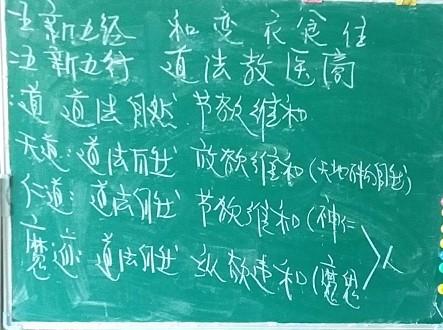 新五经 和变衣食住
新五行 道法教医商
道 道法自然 节欲维和
天道:道法自然 放欲维和(天地神仙自然)
仁道:道法自然 节欲维和(神仁
魔道:道法自然 纵欲违和(魔鬼 人